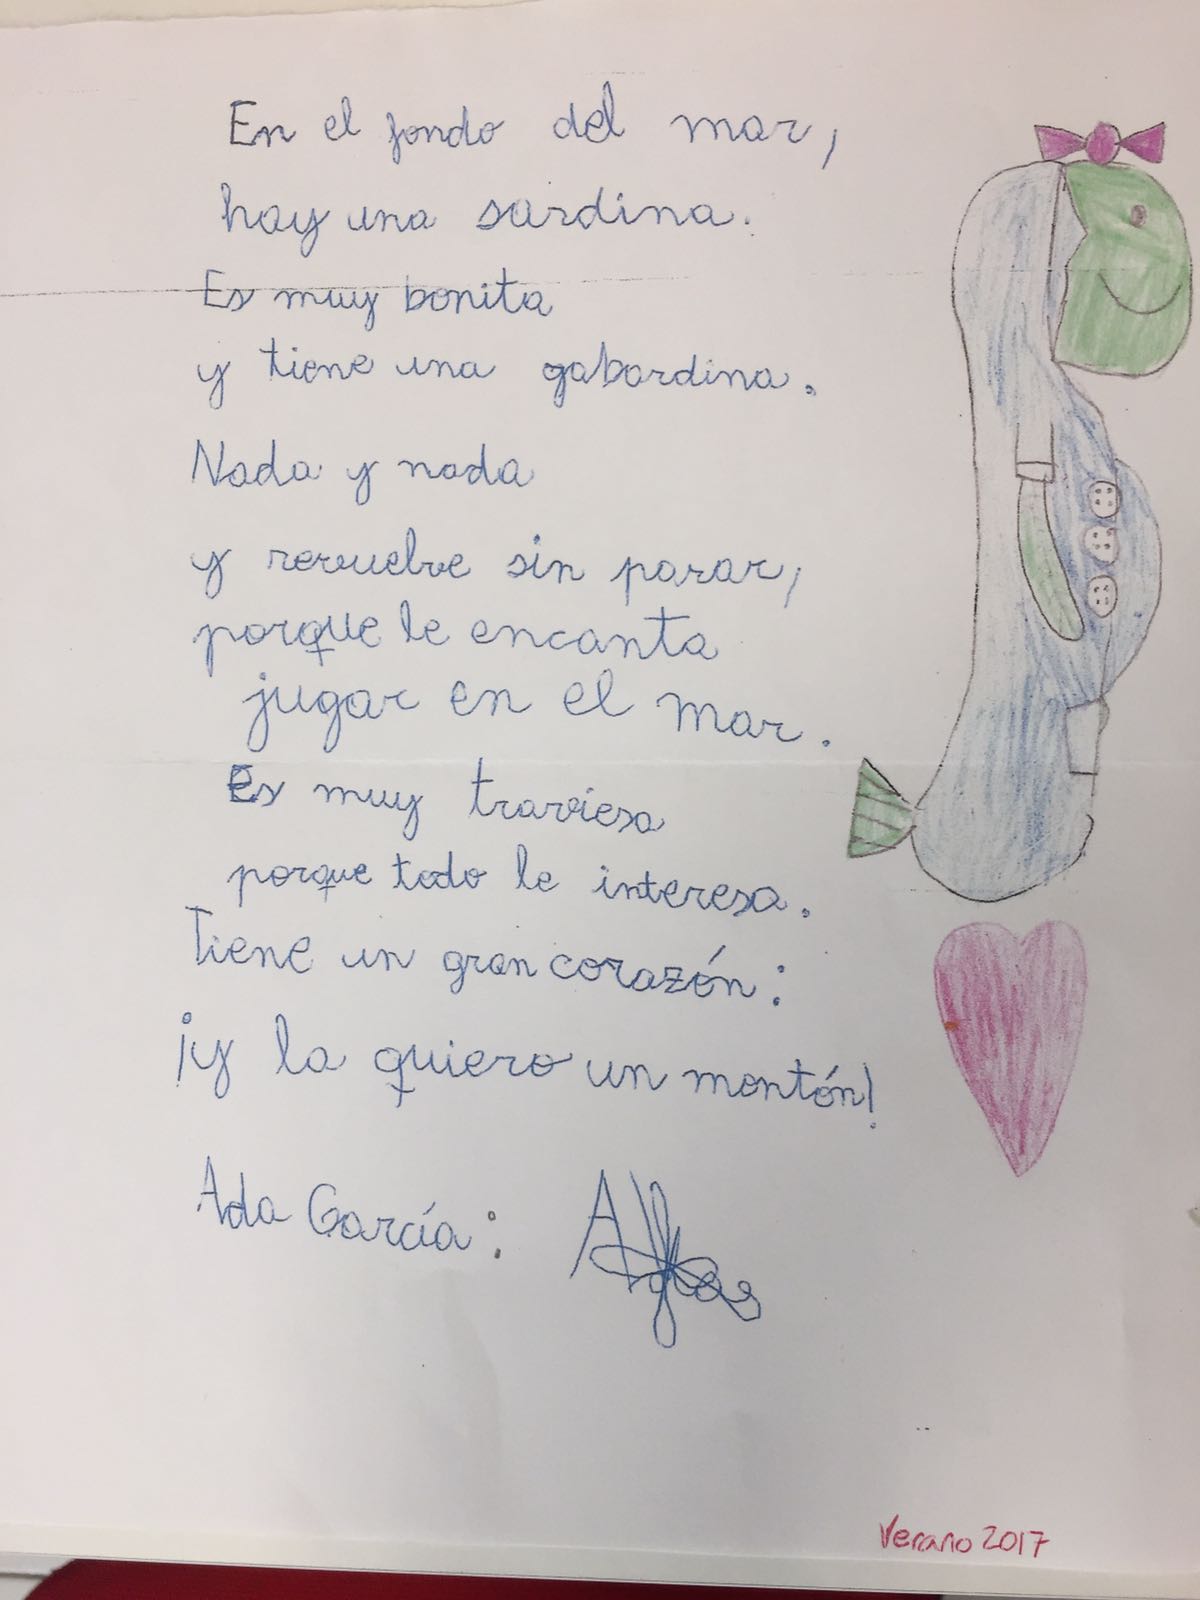 En el fondo del mar,
hay una sardina.
Es muy bonita
y tiene una gabardina.
Nada y nada
y revuelve sin parar,
porque le encanta
jugar en el mar.
Es muy traviesa
porque todo le interesa.
Tiene un gran corazón:
¡y la quiero un montón!
Ada García:
Verano 2017